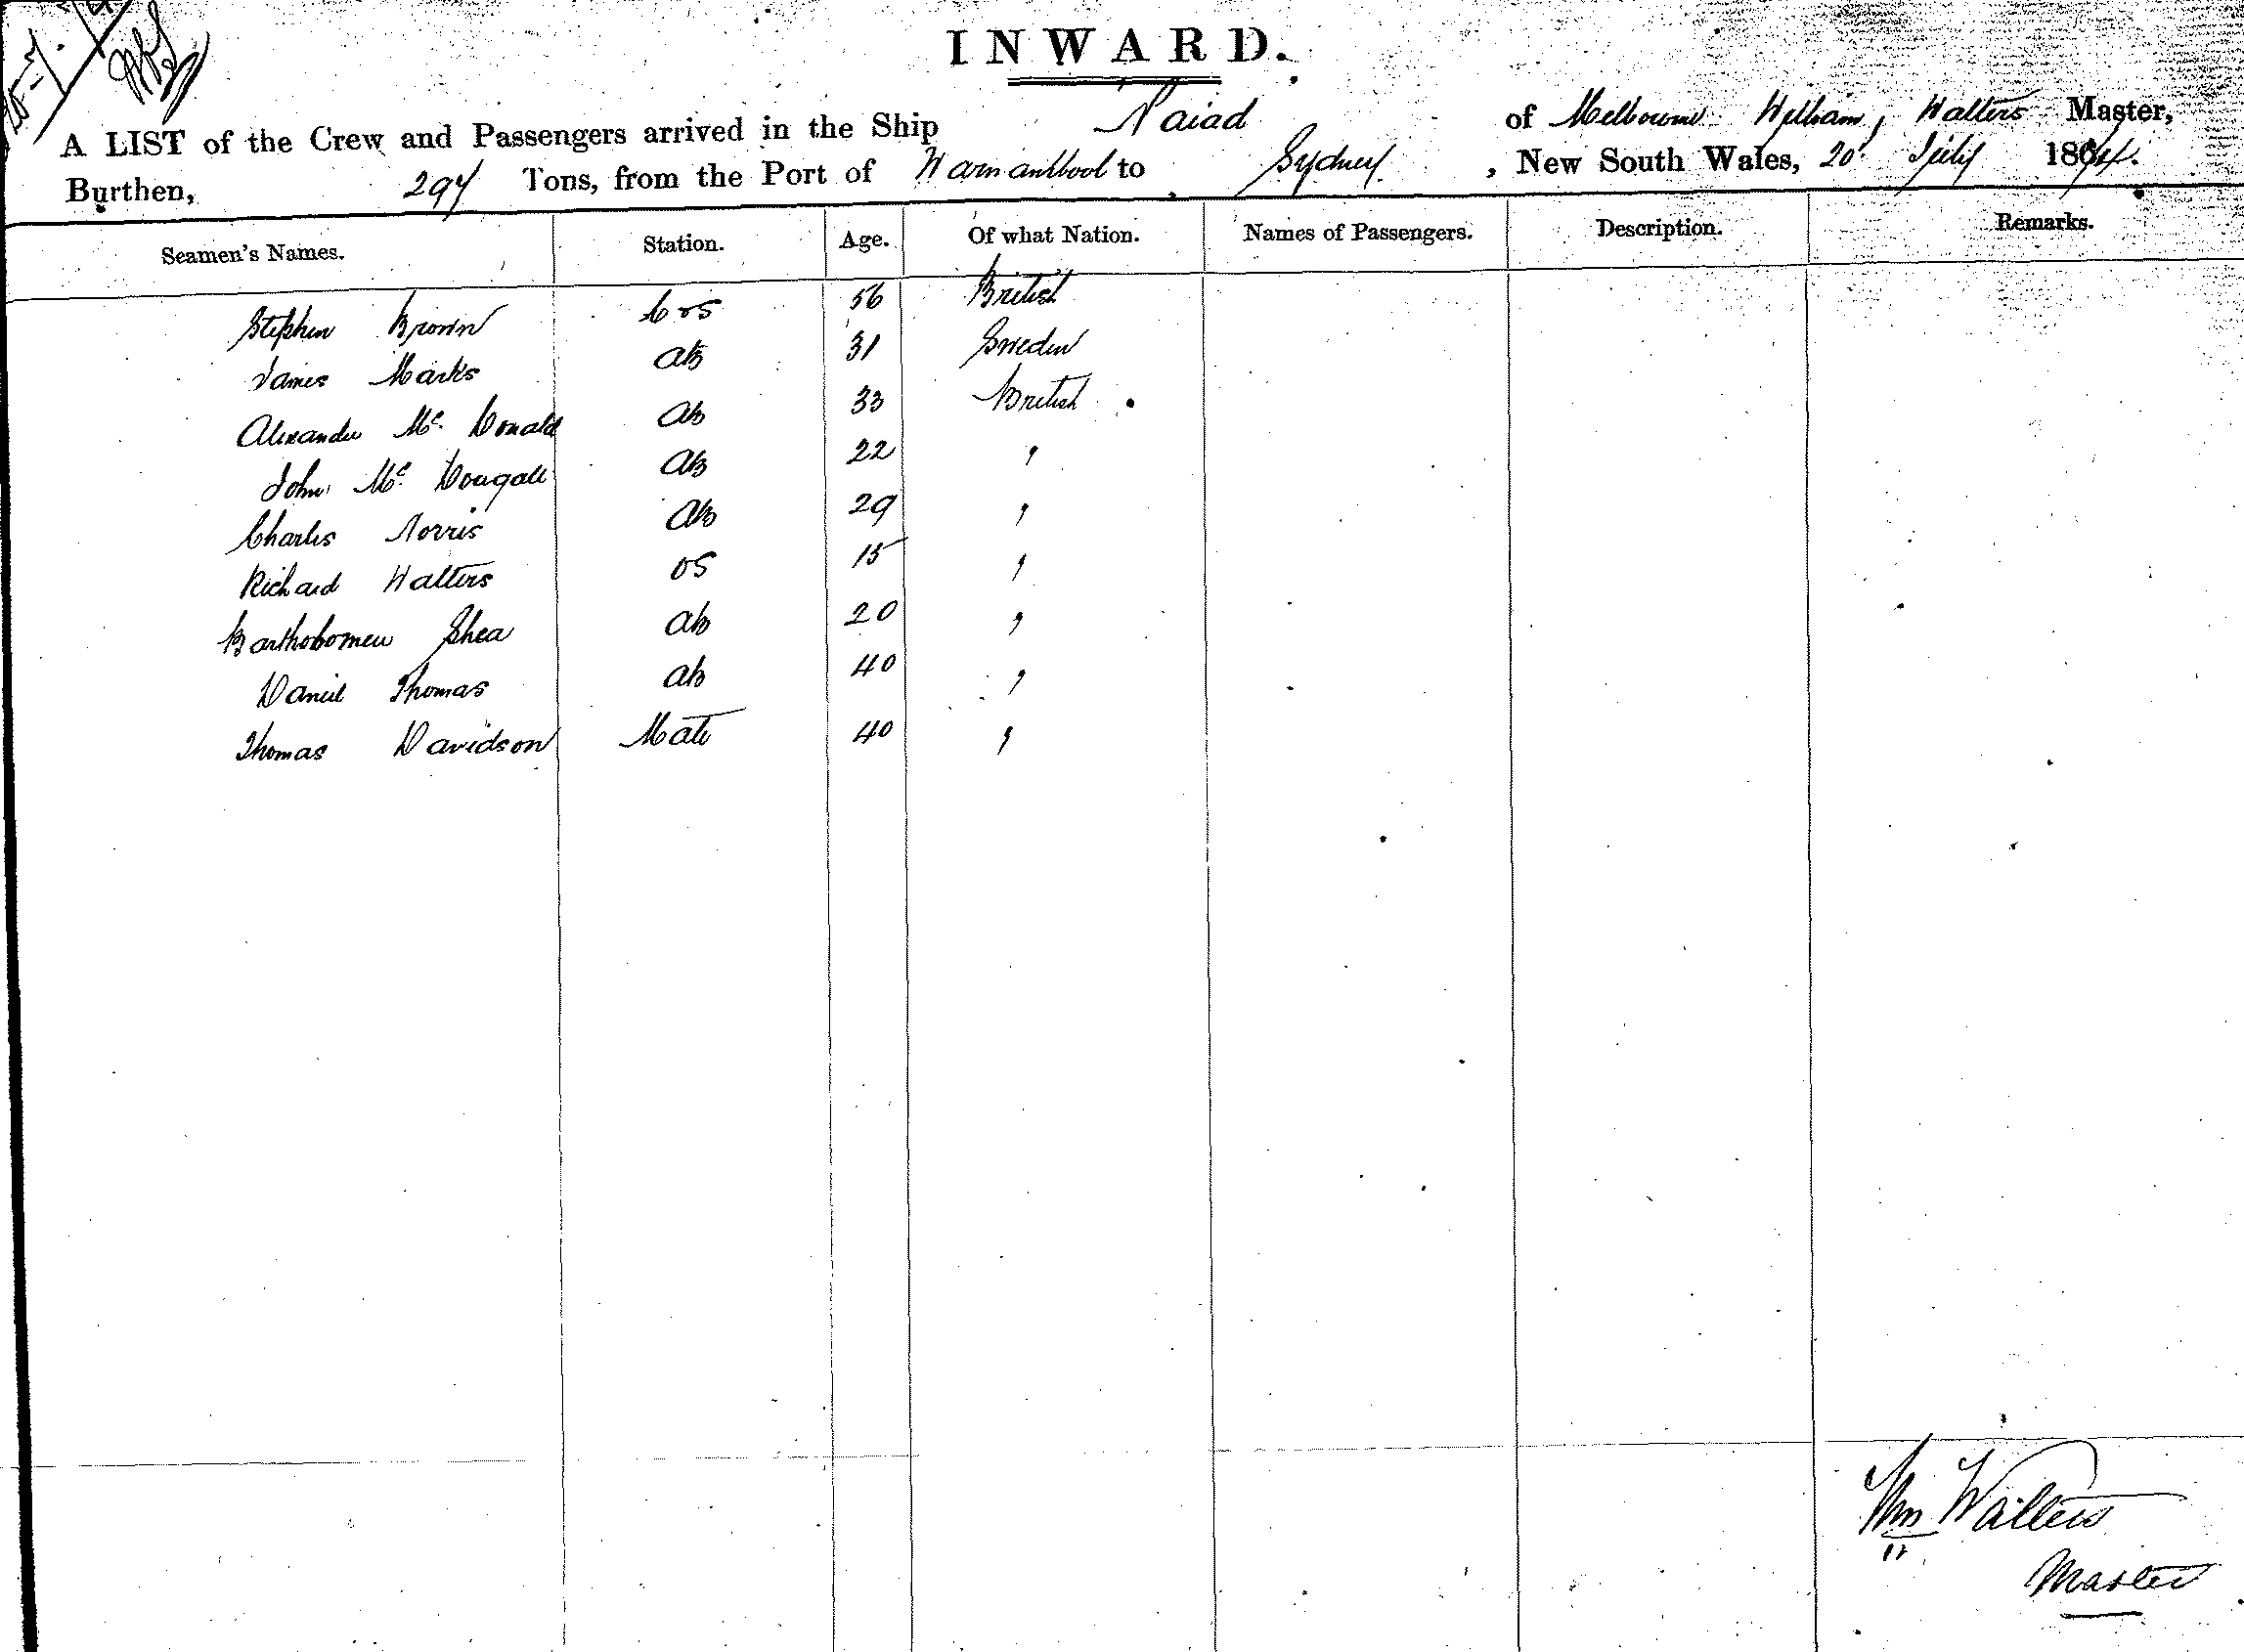 INWARD.
A LIST of the Crew and Passengers arrived in the Ship Naiad of Melbourne William Walters Master,
Burthen, 297 Tons, from the Port of Warnambool to Sydney, New South Wales, 20 July 1864.
Seamen's Names. Station. Age. Of what Nation. Names of Passengers. Description. Remarks.
Stephen Brown Cos 56 British
James Marks AB 31 Sweden
Alexander Mc. Donald AB 33 British
John Mc. Dougall AB 22 "
Charles Norris AB 29 "
Richard Walters OS 15 "
Bartholomew Shea AB 20 "
Daniel Thomas AB 40 "
Thomas Davidson Mate 40 "
Wm Walters
Master